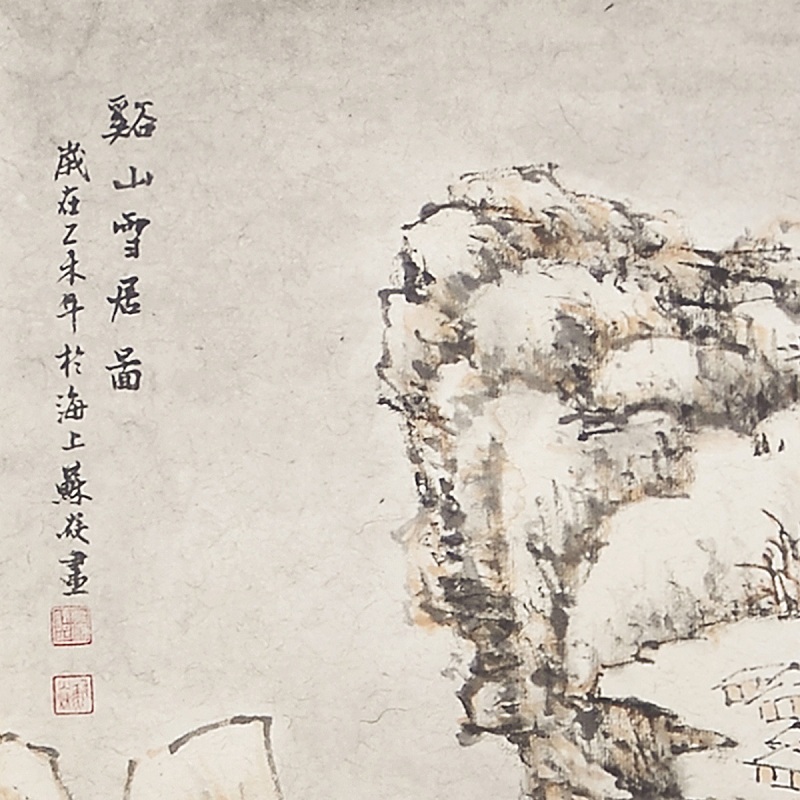 谿山雪居圖
歲在乙未年於海上蘇
畫